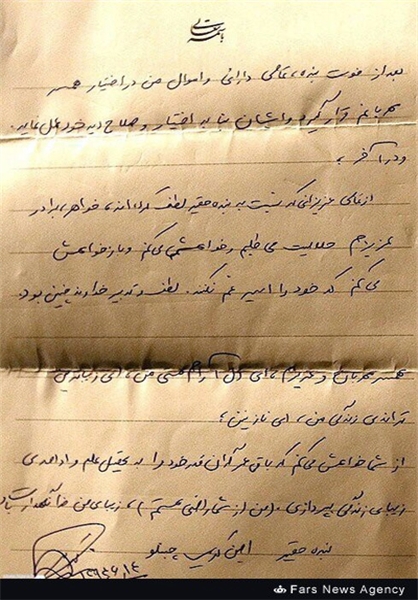 باسمه تعالی
بعد از فوت بنده، تمامی دارائی و اموال من در اختیار همسر
مهربانم قرار گیرد و ایشان بنا به اختیار و صلاح دید خود عمل نماید.
و در آخر،
از تمامی عزیزانی که نسبت به بنده حقیر لطف کرده‌اند، خواهر، برادر
عزیزم حلالیت می طلبم و خواهش می کنم و باز خواهش
می کنم که خود را اسیر غم نکنند. لطف و تدبیر خداوند چنین بود.
همسر مهربان و عزیزم، ای دل آرام هستی من، ای زیباترین
ترانه‌ی زندگی من، ای نازنین؛
از شما خواهش می کنم که باقی عمر گران‌قدر خود را به تحصیل علم و ادامه‌ی
زیبای زندگی بپردازی. (من از شما راضی هستم)، زیبای من خدانگهدارت باد
بنده حقیر امین کریمی چنبلو
Fars News Agency